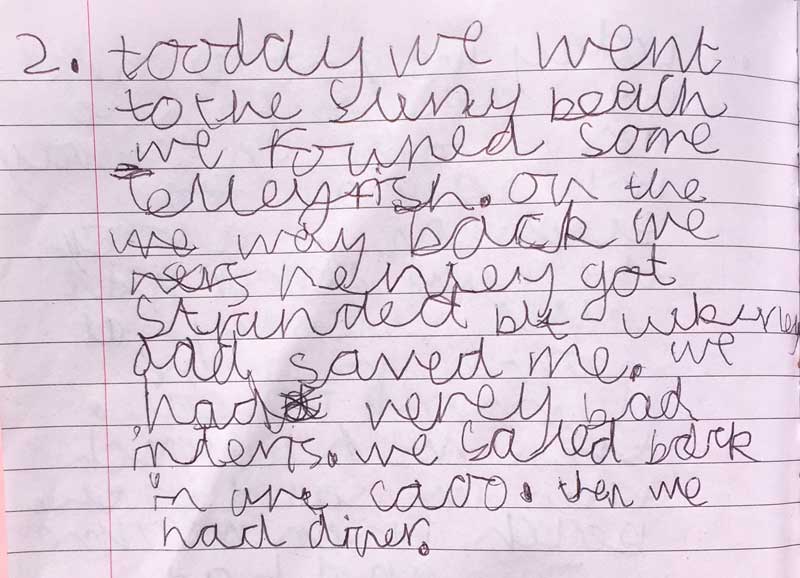 2. tooday we went
to the suny beach
we founed some
felleyfish. on the
we way back we
nenley got
stranded but lukurley
dad saved me. we
had verey bad
inderis. we saled back
in are caoo. then we
had diner.